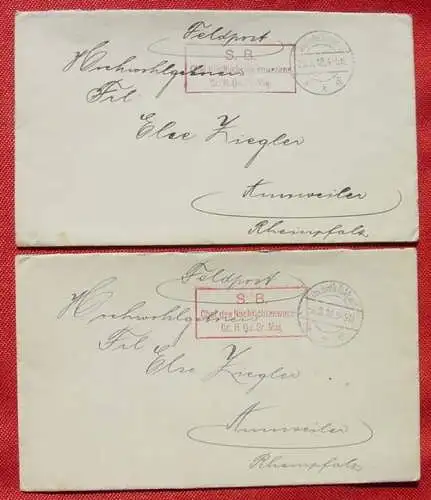 Feldpost
S. B.
Chef des Nachrichtenwesens
Gr. H. Qu. Sr. Maj.
Hochwohlgeboren
Frl
Else Ziegler
Annweiler
Rheinpfalz
Feldpost
S. B.
Chef des Nachrichtenwesens
Gr. H. Qu. Sr. Maj.
Hochwohlgeboren
Frl
Else Ziegler
Annweiler
Rheinpfalz